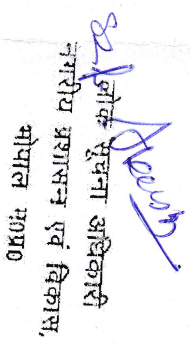 लोक सूचना अधिकारी
नगरीय प्रशासन एवं विकास,
भोपाल म0प्र0